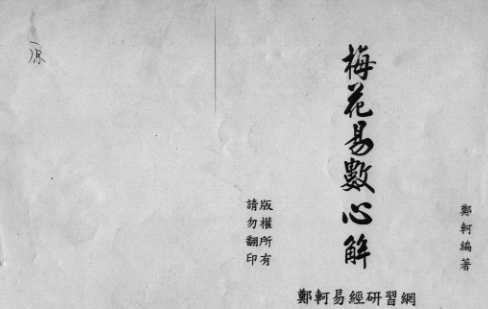 鄭軻編著
梅花易數心解
版權所有
請勿翻印
鄭軻易經研習網